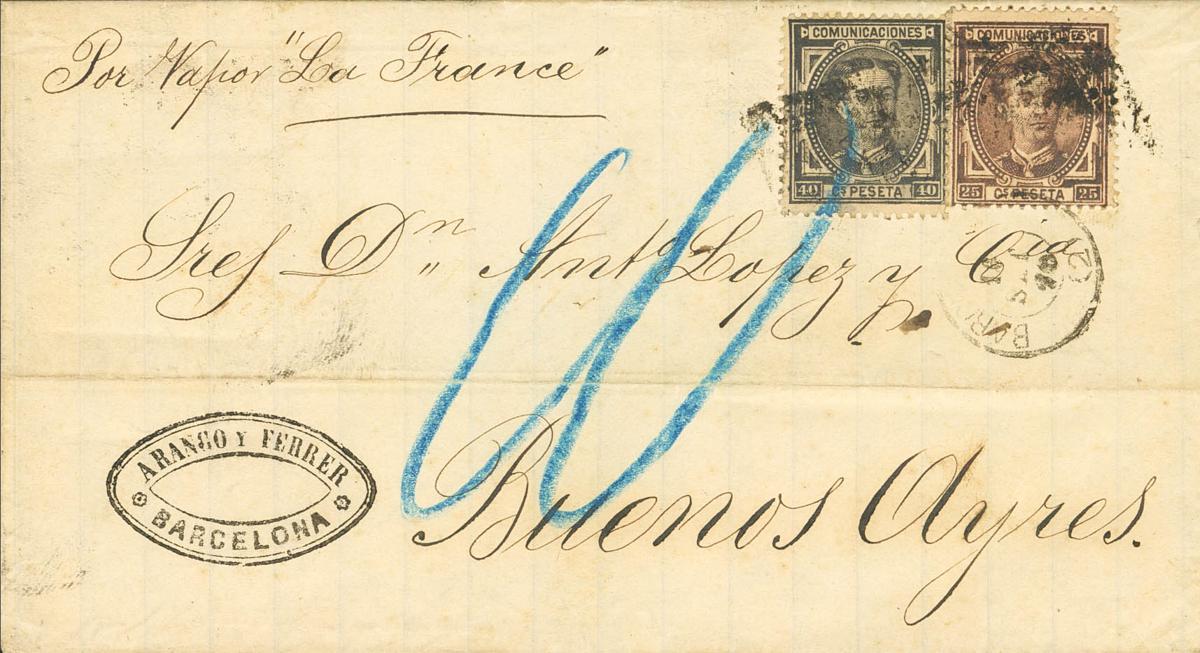 Por Vapor "La France"
COMUNICACIONES
40 Cs PESETA 40
COMUNICACIONES
25 Cs PESETA 25
Sres Dn Anto Lopez y Cia
60
ARANGO Y FERRER
BARCELONA
Buenos Ayres.